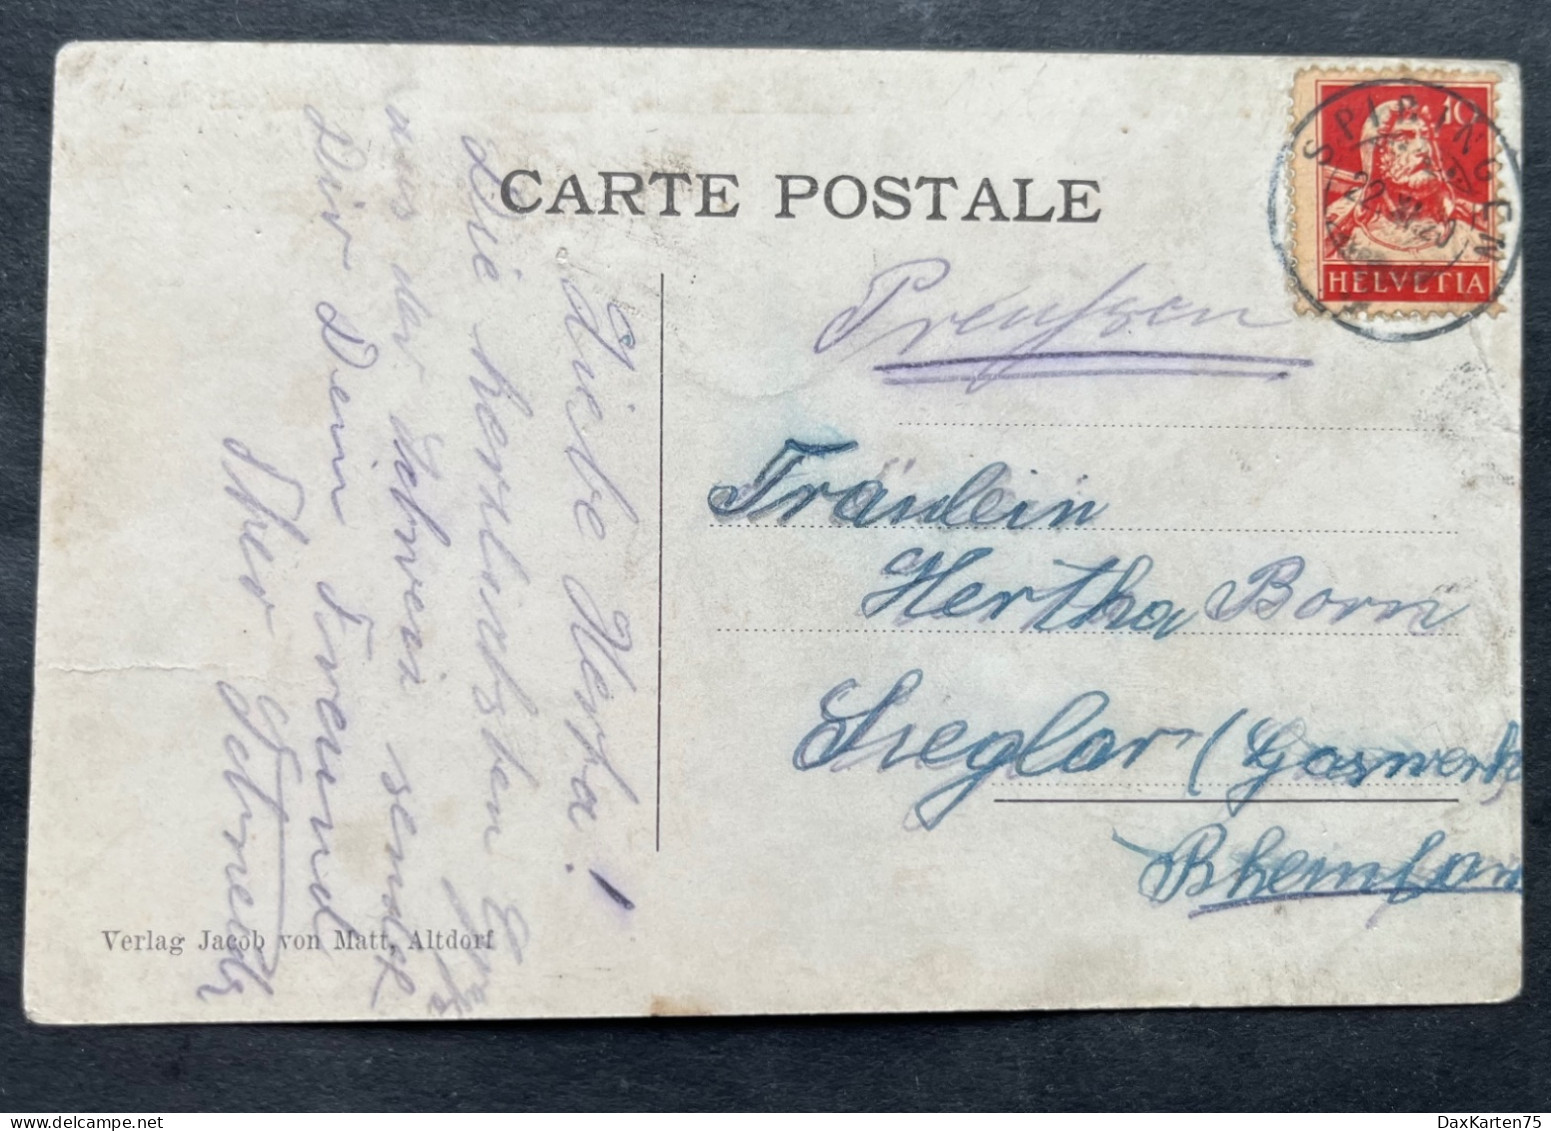 CARTE POSTALE
10
HELVETIA
SPIRINGEN
Preußen
Fräulein
Hertha Born
Sieglar (Gaswerk
Rheinlan
Liebe Herta!
Die herzlichsten
aus der Schweiz sendet
Dir Dein Freund
Theo Schneider
Verlag Jacob von Matt, Altdorf
www.delcampe.net
DaxKarten75